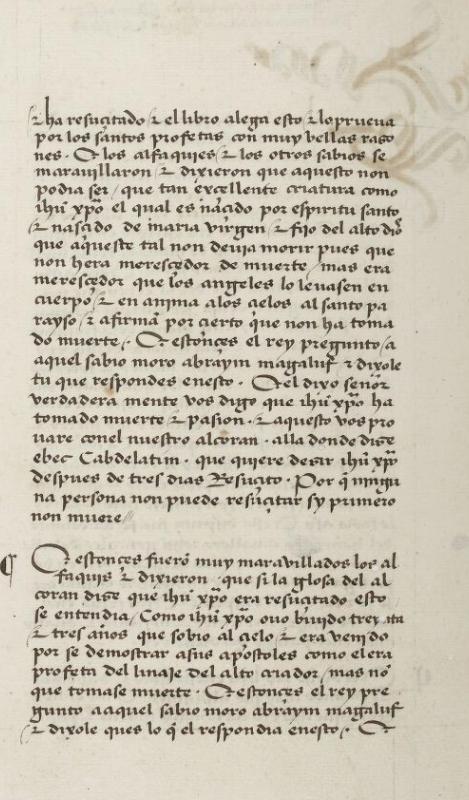 ⁊ ha resucitado ⁊ el libro alega esto ⁊ lo prueva
por los santos profetas con muy bellas raso
nes · E los alfaquies ⁊ los otros sabios se
maravillaron ⁊ dixieron que aquesto non
podia ser / que tan excellente criatura como
ihũ xp̃o el qual es nascido por espiritu santo
⁊ nascido de maria virgen ⁊ fijo del alto dis̃
que aqueste tal non devia morir pues que
non hera merescedor de muerte / mas era
merescedor que los angeles lo levasen en
cuerpo ⁊ en anima a los cielos al santo pa
rayso / ⁊ afirmã por cierto q̃ue non ha toma
do muerte / · E estonces el rey pregunto / a
aquel sabio moro abraym magaluf ⁊ dixole
tu que respondes enesto · E el dixo señor
verdadera mente vos digo que ihũ xp̃o ha
tomado muerte ⁊ pasion · ⁊ aquesto vos pro
uare conel nuestro alcoran · alla donde dize
ebec Cabdelatim · que quiere dezir ihũ xp̃o
despues de tres dias Resucito · Por q̃ ningu
na persona non puede resucitar sy primero
non muere //
¶ E estonces fuerõ muy maravillados los al
faquis ⁊ dixieron · que si la glosa del al
coran dize que ihũ xp̃o era resucitado esto
se entendia / Como ihũ xp̃o ovo bivido treynta
⁊ tres años que sobio al cielo ⁊ era venido
por se demostrar asus apostoles como el era
profeta del linaje del alto criador / mas nõ
que tomase muerte · E estonces el rey pre
gunto a aquel sabio moro abraym magaluf
⁊ dixole ques lo q̃ el respondia enesto / · E